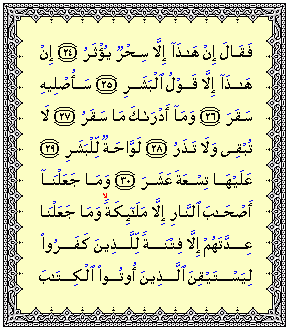 فَقَالَ إِنْ هَـٰذَآ إِلَّا سِحْرٌ يُؤْثَرُ ﴿٢٤﴾ إِنْ
هَـٰذَآ إِلَّا قَوْلُ ٱلْبَشَرِ ﴿٢٥﴾ سَأُصْلِيهِ
سَقَرَ ﴿٢٦﴾ وَمَآ أَدْرَىٰكَ مَا سَقَرُ ﴿٢٧﴾ لَا
تُبْقِى وَلَا تَذَرُ ﴿٢٨﴾ لَوَّاحَةٌ لِّلْبَشَرِ ﴿٢٩﴾
عَلَيْهَا تِسْعَةَ عَشَرَ ﴿٣٠﴾ وَمَا جَعَلْنَآ
أَصْحَـٰبَ ٱلنَّارِ إِلَّا مَلَـٰٓئِكَةً ۙ وَمَا جَعَلْنَا
عِدَّتَهُمْ إِلَّا فِتْنَةً لِّلَّذِينَ كَفَرُوا۟
لِيَسْتَيْقِنَ ٱلَّذِينَ أُوتُوا۟ ٱلْكِتَـٰبَ